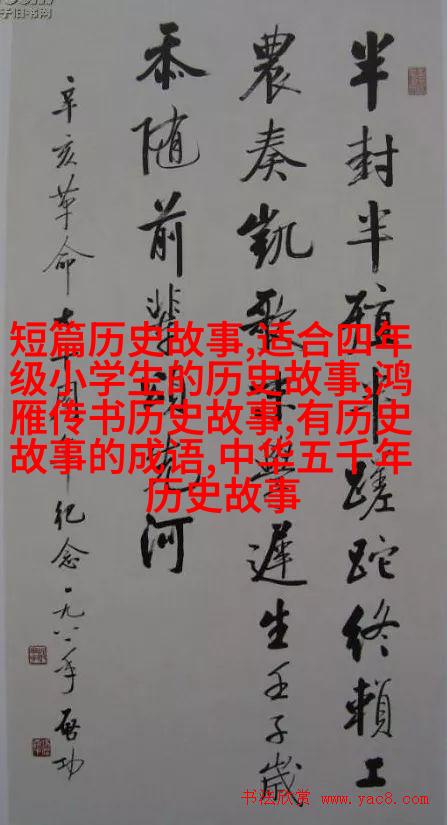 子旧书网
半封半殖半蹉跎終賴工
農奏凱歌末學遲生壬子歲
忝随前輩頌先河
辛亥革命七十周年纪念一九八一年啓功
短篇历史故事,适合四年
级小学生的历史故事,鸿
雁传书历史故事,有历史
故事的成语,中华五千年
历史故事
书法欣赏 www.yac8.com